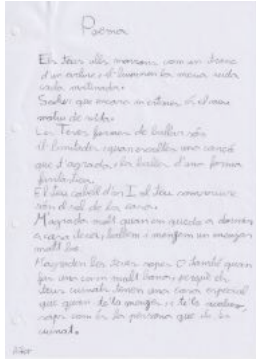 Poema
Els teus ulls marrons com un tronc
d'un arbre, il·luminen la meva vida
cada matinada.
Saber que encara m'estimes és el meu
motiu de vida.
Les Teves formes de ballar són
il·limitades quan escoltes una cançó
que t'agrada, la balles d'una forma
fantàstica.
El teu cabell d'or I el teu somriure
són el sol de la casa.
M'agrada molt quan em quedo a dormir
a casa teva, ballem i mengem un menjar
molt bo.
M'agraden les teves sopes O també quan
fas una carn molt bona, perquè els
teus cuinats tenen una cosa especial
que quan te la menges, i te la acabes,
saps com és la persona que ho ha
cuinat.